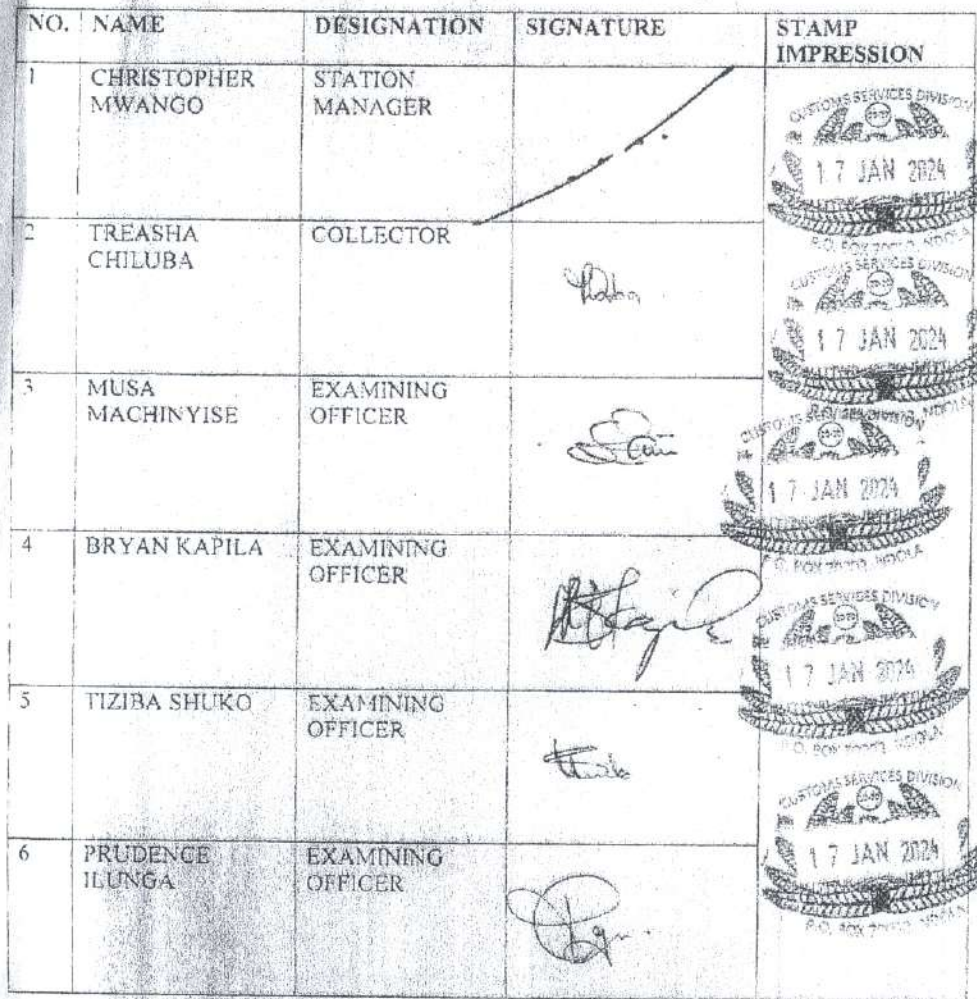 NO. NAME DESIGNATION SIGNATURE STAMP
IMPRESSION
1 CHRISTOPHER STATION
MWANGO MANAGER
CUSTOMS SERVICES DIVISION
17 JAN 2024
P.O. BOX NDOLA
2 TREASHA COLLECTOR
CHILUBA
CUSTOMS SERVICES DIVISION
17 JAN 2024
NDOLA
3 MUSA EXAMINING
MACHINYISE OFFICER
CUSTOMS SERVICES DIVISION
17 JAN 2024
P.O. BOX NDOLA
4 BRYAN KAPILA EXAMINING
OFFICER
CUSTOMS SERVICES DIVISION
17 JAN 2024
P.O. BOX NDOLA
5 TIZIBA SHUKO EXAMINING
OFFICER
CUSTOMS SERVICES DIVISION
17 JAN 2024
P.O. BOX NDOLA
6 PRUDENCE EXAMINING
ILUNGA OFFICER